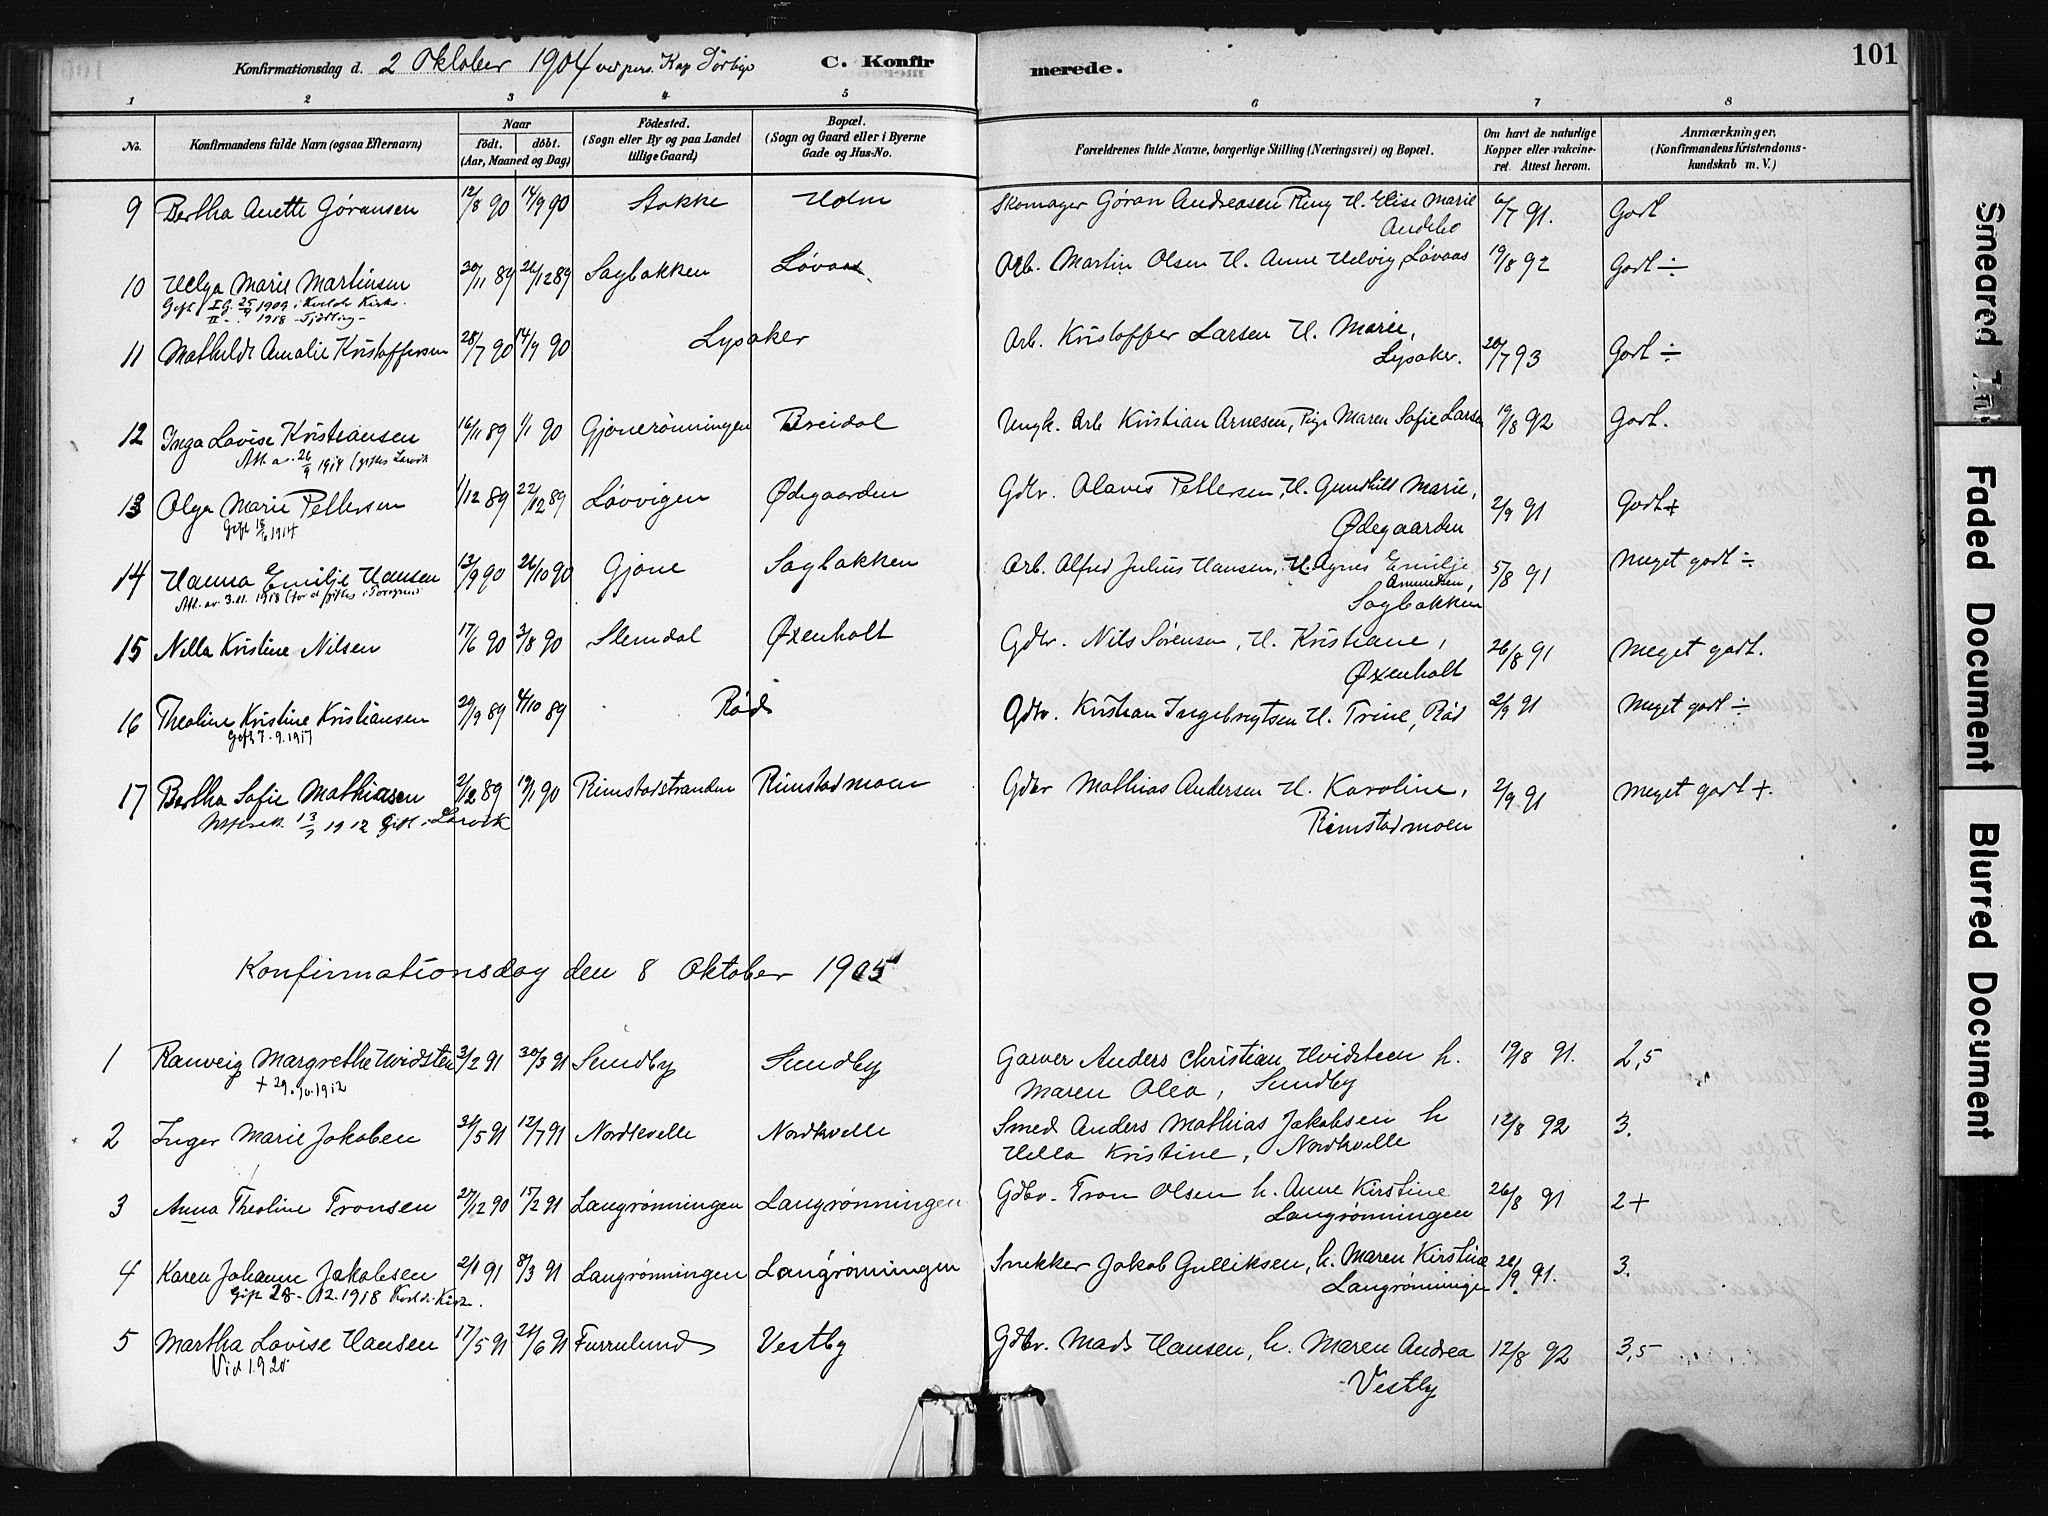 101
Konfirmationsdag d. 2 Oktober 1904 ved pers. Kap C. Konfirmerede.
1 2 3 4 5 6 7 8
No. Konfirmandens fulde Navn (ogsaa Efternavn) Naar födt. döbt. (Aar, Maaned og Dag) Födested. (Sogn eller By og paa Landet tillige Gaard) Bopæl. (Sogn og Gaard eller i Byerne Gade og Hus-No. Forældrenes fulde Navne, borgerlige Stilling (Næringsvei) og Bopæl. Om havt de naturlige Kopper eller vakcineret. Attest herom. Anmærkninger, (Konfirmandens Kristendomskundskab m. V.)
9 Bertha Anette Gøransen 12/8 90 14/9 90 Stokke Holm Skomager Gøran Andreasen Ring H. Elise Marie 6/7 91. Godt
Andebo
10 Helga Marie Martinsen 30/11 89 26/12 89 Sagbakken Løvaas Arb. Martin Olsen H. Anne Helvig, Løvaas 19/8 92 Godt ÷
Gift I g. 25/9 1909 i Kvelde Kirke.
II - 1918 - Tjølling -
11 Mathilde Amalie Kristoffersen 28/7 90 14/9 90 Lysaker Arb. Kristoffer Larsen H. Marie, 20/7 93 Godt ÷
Lysaker.
12 Inga Lovise Kristiansen 16/11 89 1/1 90 Gjonerønningen Breidal Ungk. Arb Kristian Arnesen, Pige Maren Sofie Larsen 19/8 92 Godt.
Att. av 26/9 1914 (giftes Larvik
13 Olga Marie Pettersen 1/12 89 22/12 89 Løvvigen Ødegaarden Gdbr. Olaves Pettersen, H. Gunhild Marie, 2/9 91 Godt+
Gift 15/6 1914 Ødegaarden
14 Hanna Emilje Hansen 13/9 90 26/10 90 Gjone Sagbakken Arb. Alfred Julius Hansen, H. Agnes Emilje 5/8 91 Meget godt ÷
Att. av 3.11.1918 Amundsen,
Sagbakken
15 Nella Kristine Nilsen 17/6 90 3/8 90 Slemdal Øxenholt Gdbr. Nils Sørensen, H. Kristiane, 26/8 91 Meget godt.
Øxenholt
16 Theoline Kristine Kristiansen 29/9 89 4/10 89 Rød Gdbr. Kristian Ingebregtsen H. Trine, Rød 2/9 91 Meget godt ÷
Gift 7.9.1917
17 Bertha Sofie Mathiasen 2/12 89 19/1 90 Rimstadstranden Rimstadmoen Gdbr Mathias Andersen H. Karoline, 2/9 91 Meget godt +.
1912 Gift i Larvik Rimstadmoen
Konfirmationsdag den 8 Oktober 1905
1 Ranveig Margrethe Hvidsten 3/2 91 30/3 91 Sundby Sundby Garver Anders Christian Hvidsteen h. 19/8 91. 2,5
+ 29.10.1912 Maren Olea, Sundby
2 Inger Marie Jakobsen 31/5 91 12/7 91 Nordkvelle Nordkvelle Smed Anders Mathias Jakobsen h 12/8 92 3.
Hella Kristine, Nordkvelle
3 Anna Theoline Tronsen 27/12 90 15/2 91 Langrønningen Langrønningen Gdbr. Tron Olsen h. Anne Kirstine 26/8 91 2+
Langrønningen
4 Karen Johanne Jakobsen 2/1 91 8/3 91 Langrønningen Langrønningen Snekker Jakob Gulliksen, h. Maren Kirstine 26/9 91. 3.
Gift 28-12.1918 Kvelde Kirke. Langrønningen
5 Martha Lovise Hansen 17/5 91 21/6 91 Furrulund Vestby Gdbr. Mads Hansen, h. Maren Andrea 12/8 92 3,5
Vid 1920 Vestby
Smeared
Faded Document
Blurred Document